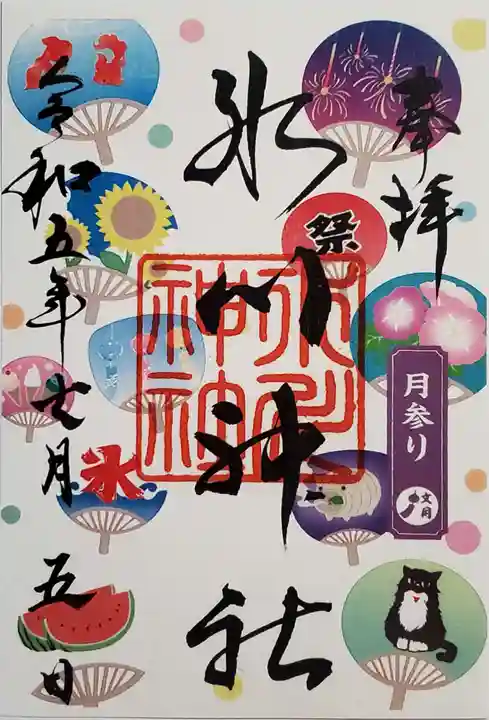 奉拝
祭
月参り
文月
氷川神社
氷川
神社
氷
令和五年七月五日